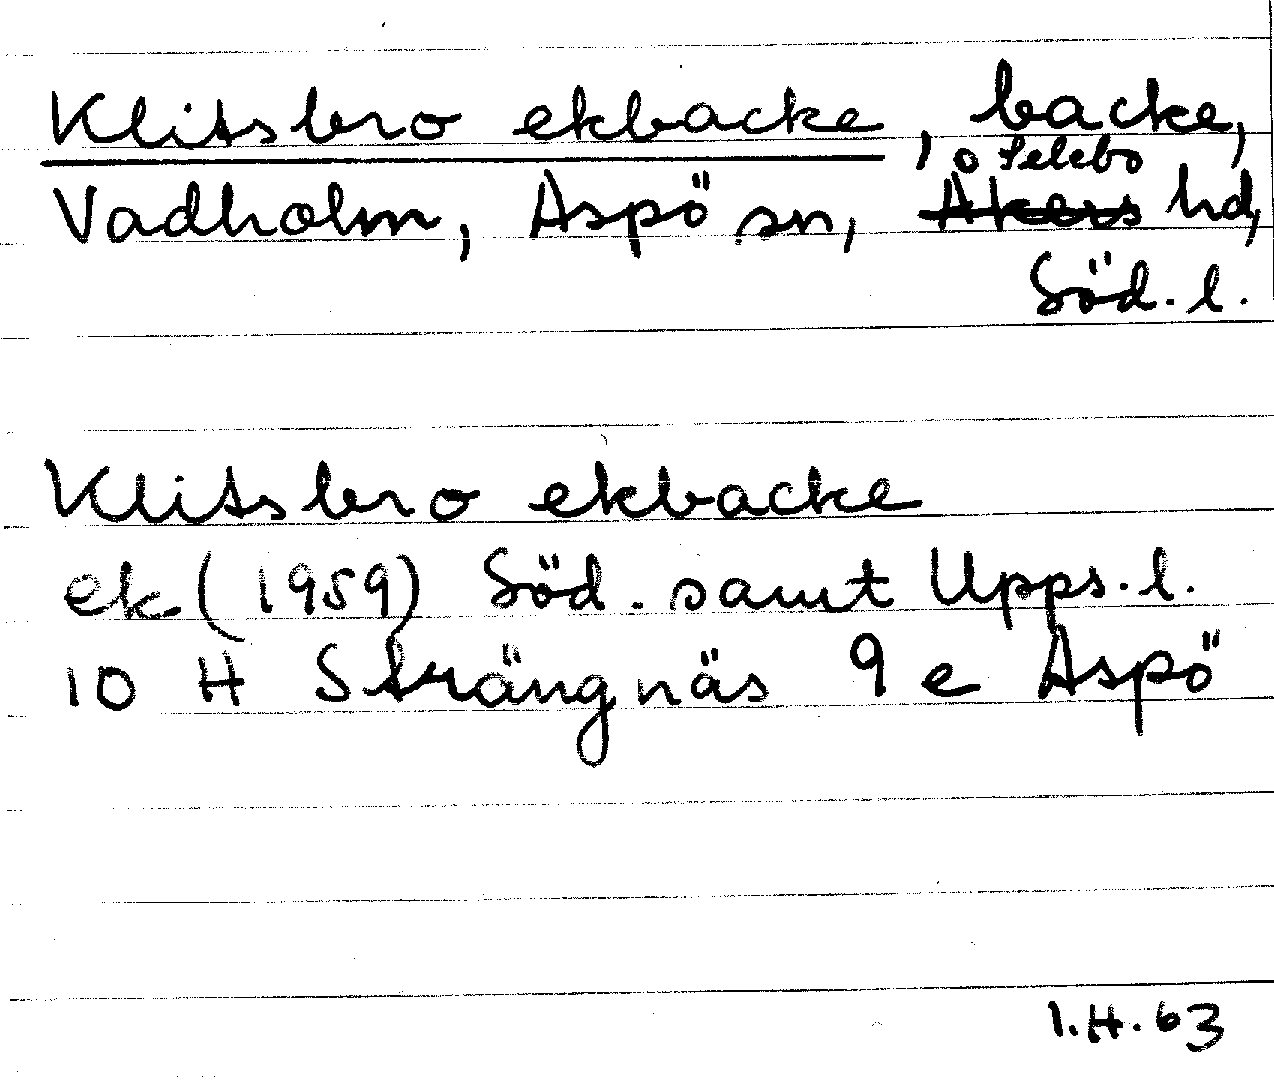 Klitsbro ekbacke, backe,
Selebo
Vadholm, Aspö sn, Åkers hd,
Söd. l.
Klitsbro ekbacke
ek (1959) Söd. samt Upps. l.
10 H Strängnäs 9 e Aspö
I.H. 63